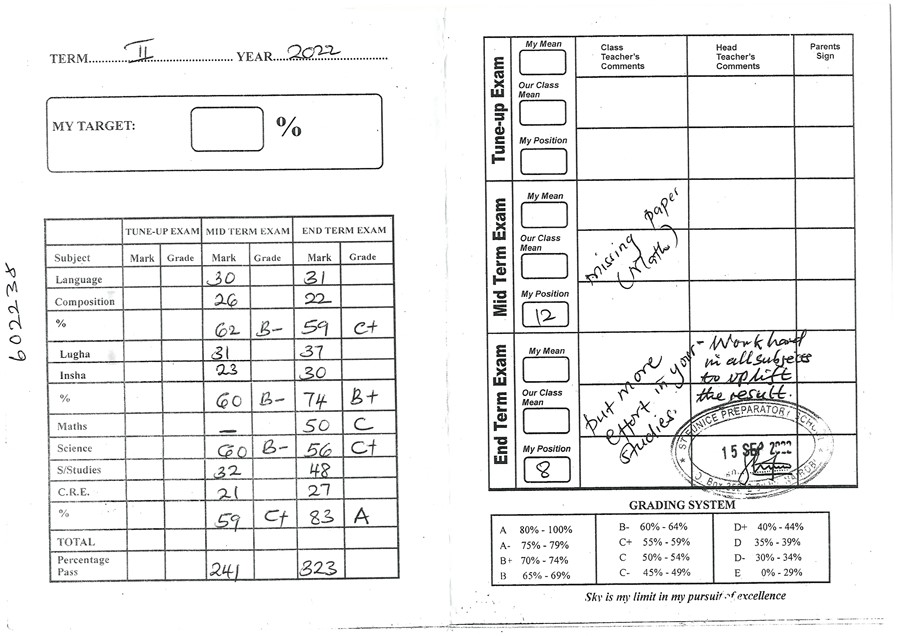 TERM II YEAR 2022
MY TARGET: %
602238
TUNE-UP EXAM MID TERM EXAM END TERM EXAM
Subject Mark Grade Mark Grade Mark Grade
Language 30 31
Composition 26 22
% 62 B- 59 C+
Lugha 31 37
Insha 23 30
% 60 B- 74 B+
Maths – 50 C
Science 60 B- 56 C+
S/Studies 32 48
C.R.E. 21 27
% 59 C+ 83 A
TOTAL
Percentage
Pass 241 323
Class
Teacher's
Comments
Head
Teacher's
Comments
Parents
Sign
Tune-up Exam
My Mean
Our Class
Mean
My Position
Mid Term Exam
My Mean
Our Class
Mean
My Position
12
missing paper
(Math)
End Term Exam
My Mean
Our Class
Mean
My Position
8
put more
effort in your
studies.
- Work hard
in all subjects
to uplift
the result.
ST EUNICE PREPARATORY SCHOOL
15 SEP 2022
NAIROBI
GRADING SYSTEM
A 80% - 100%
A- 75% - 79%
B+ 70% - 74%
B 65% - 69%
B- 60% - 64%
C+ 55% - 59%
C 50% - 54%
C- 45% - 49%
D+ 40% - 44%
D 35% - 39%
D- 30% - 34%
E 0% - 29%
Sky is my limit in my pursuit of excellence